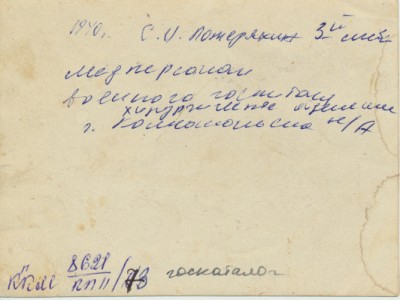 1940г. С. И. Потерякин 3й слева
Медперсонал
военного госпиталя
хирургическое отделение
г. н/А
ККМ 8621 госкаталог